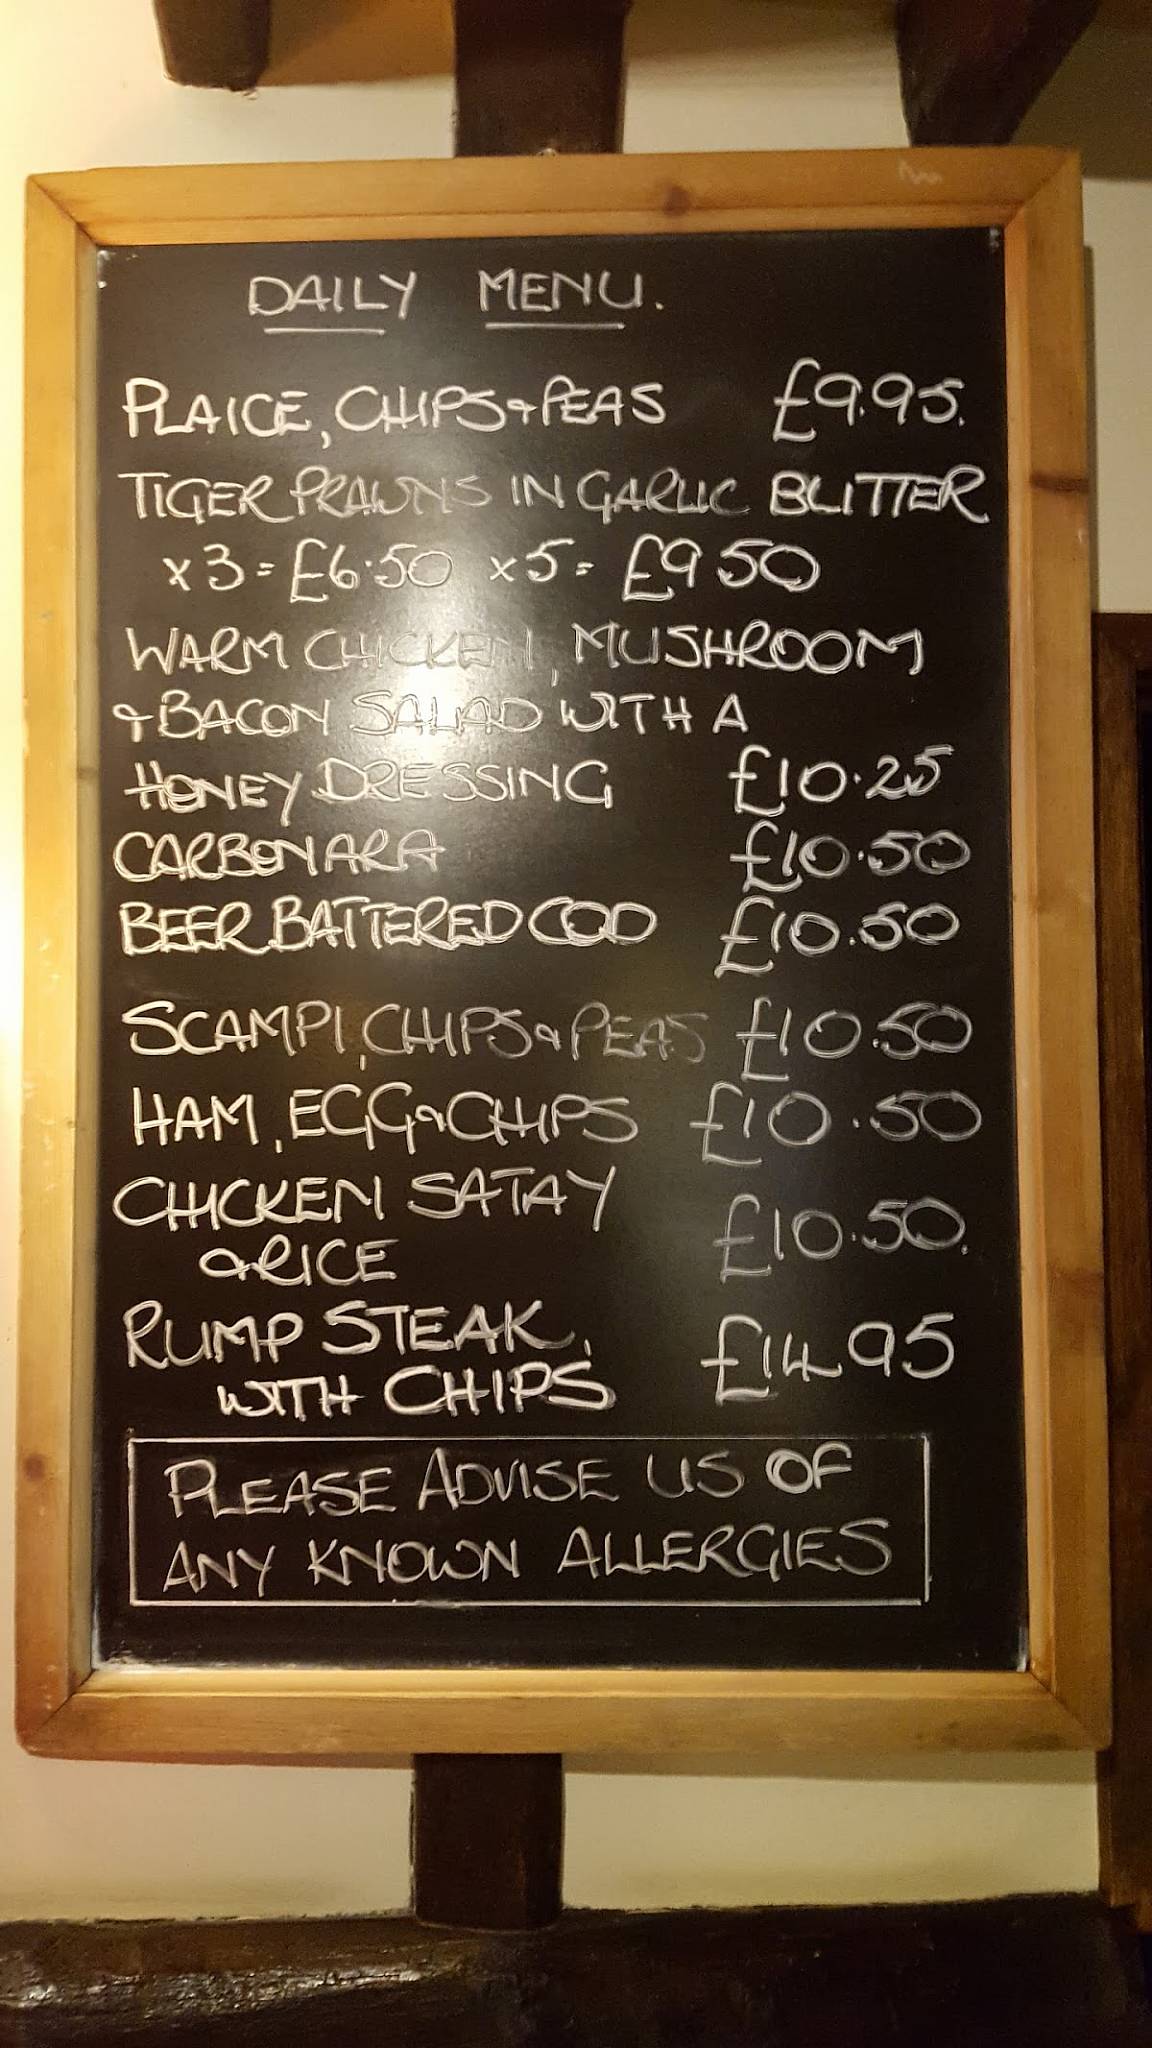 DAILY MENU.
PLAICE, CHIPS & PEAS £9.95.
TIGER PRAWNS IN GARLIC BUTTER
x3 = £6.50 x5 = £9 50
WARM CHICKEN, MUSHROOM
& BACON SALAD WITH A
HONEY DRESSING £10.25
CARBONARA £10.50
BEER BATTERED COD £10.50
SCAMPI, CHIPS & PEAS £10.50
HAM, EGG & CHIPS £10.50
CHICKEN SATAY
& RICE £10.50.
RUMP STEAK,
WITH CHIPS £14 95
PLEASE ADVISE US OF
ANY KNOWN ALLERGIES